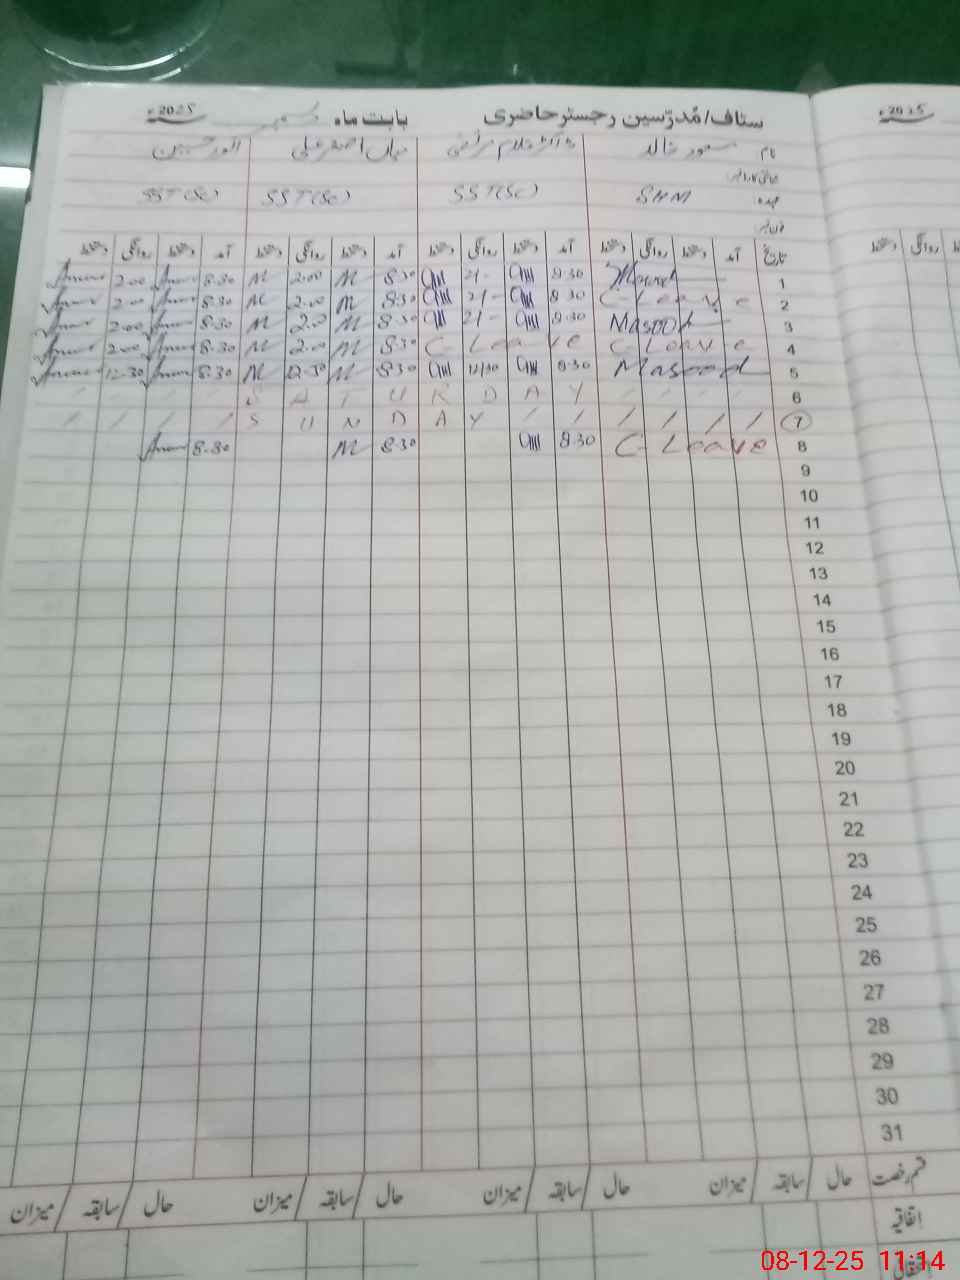 سٹاف/مُدرّسین رجسٹر حاضری بابت ماہ دسمبر 2025ء
2025ء
نام مسعود خالد ڈاکٹر غلام مرتضیٰ میاں اصغر علی انور حسین
عہدہ SHM SST(Sc) SST(Sc) SST(Sc)
تاریخ آمد دستخط روانگی دستخط آمد دستخط روانگی دستخط آمد دستخط روانگی دستخط آمد دستخط روانگی دستخط
دستخط روانگی دستخط
1 Masood 8.30 2/- 8.30 M 2.00 M 8.30 Anwar 2.00 Anwar
2 C-Leave 8.30 2/- 8.30 M 2.00 M 8.30 Anwar 2.00 Anwar
3 Masood 8.30 2/- 8.30 M 2.00 M 8.30 Anwar 2.00 Anwar
4 C-Leave C-Leave 8.30 M 2.00 M 8.30 Anwar 2.00 Anwar
5 Masood 8.30 12/30 8.30 M 12-30 M 8.30 Anwar 12-30 Anwar
6 SATURDAY
7 SUNDAY
8 C-Leave 8.30 8.30 M 8.30 Anwar
9
10
11
12
13
14
15
16
17
18
19
20
21
22
23
24
25
26
27
28
29
30
31
قسم رخصت حال سابقہ میزان حال سابقہ میزان حال سابقہ میزان حال سابقہ میزان
اتفاقیہ
08-12-25 11:14